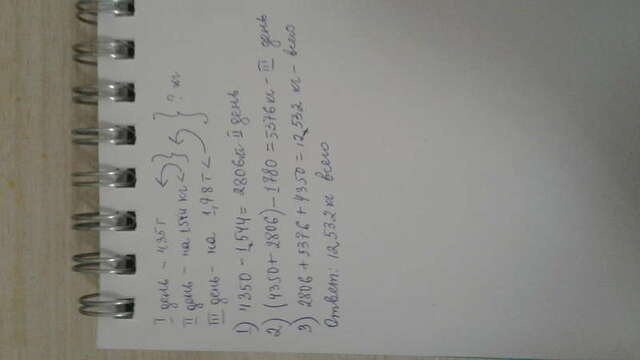 I день - 4,35 т
II день - на 1544 кг <
III день - на 1,78 т <
? кг
1) 4350 - 1,544 = 2806 кг II день
2) (4350 + 2806) - 1780 = 5376 кг - III день
3) 2806 + 5376 + 4350 = 12,532 кг - всего
Ответ: 12,532 кг всего